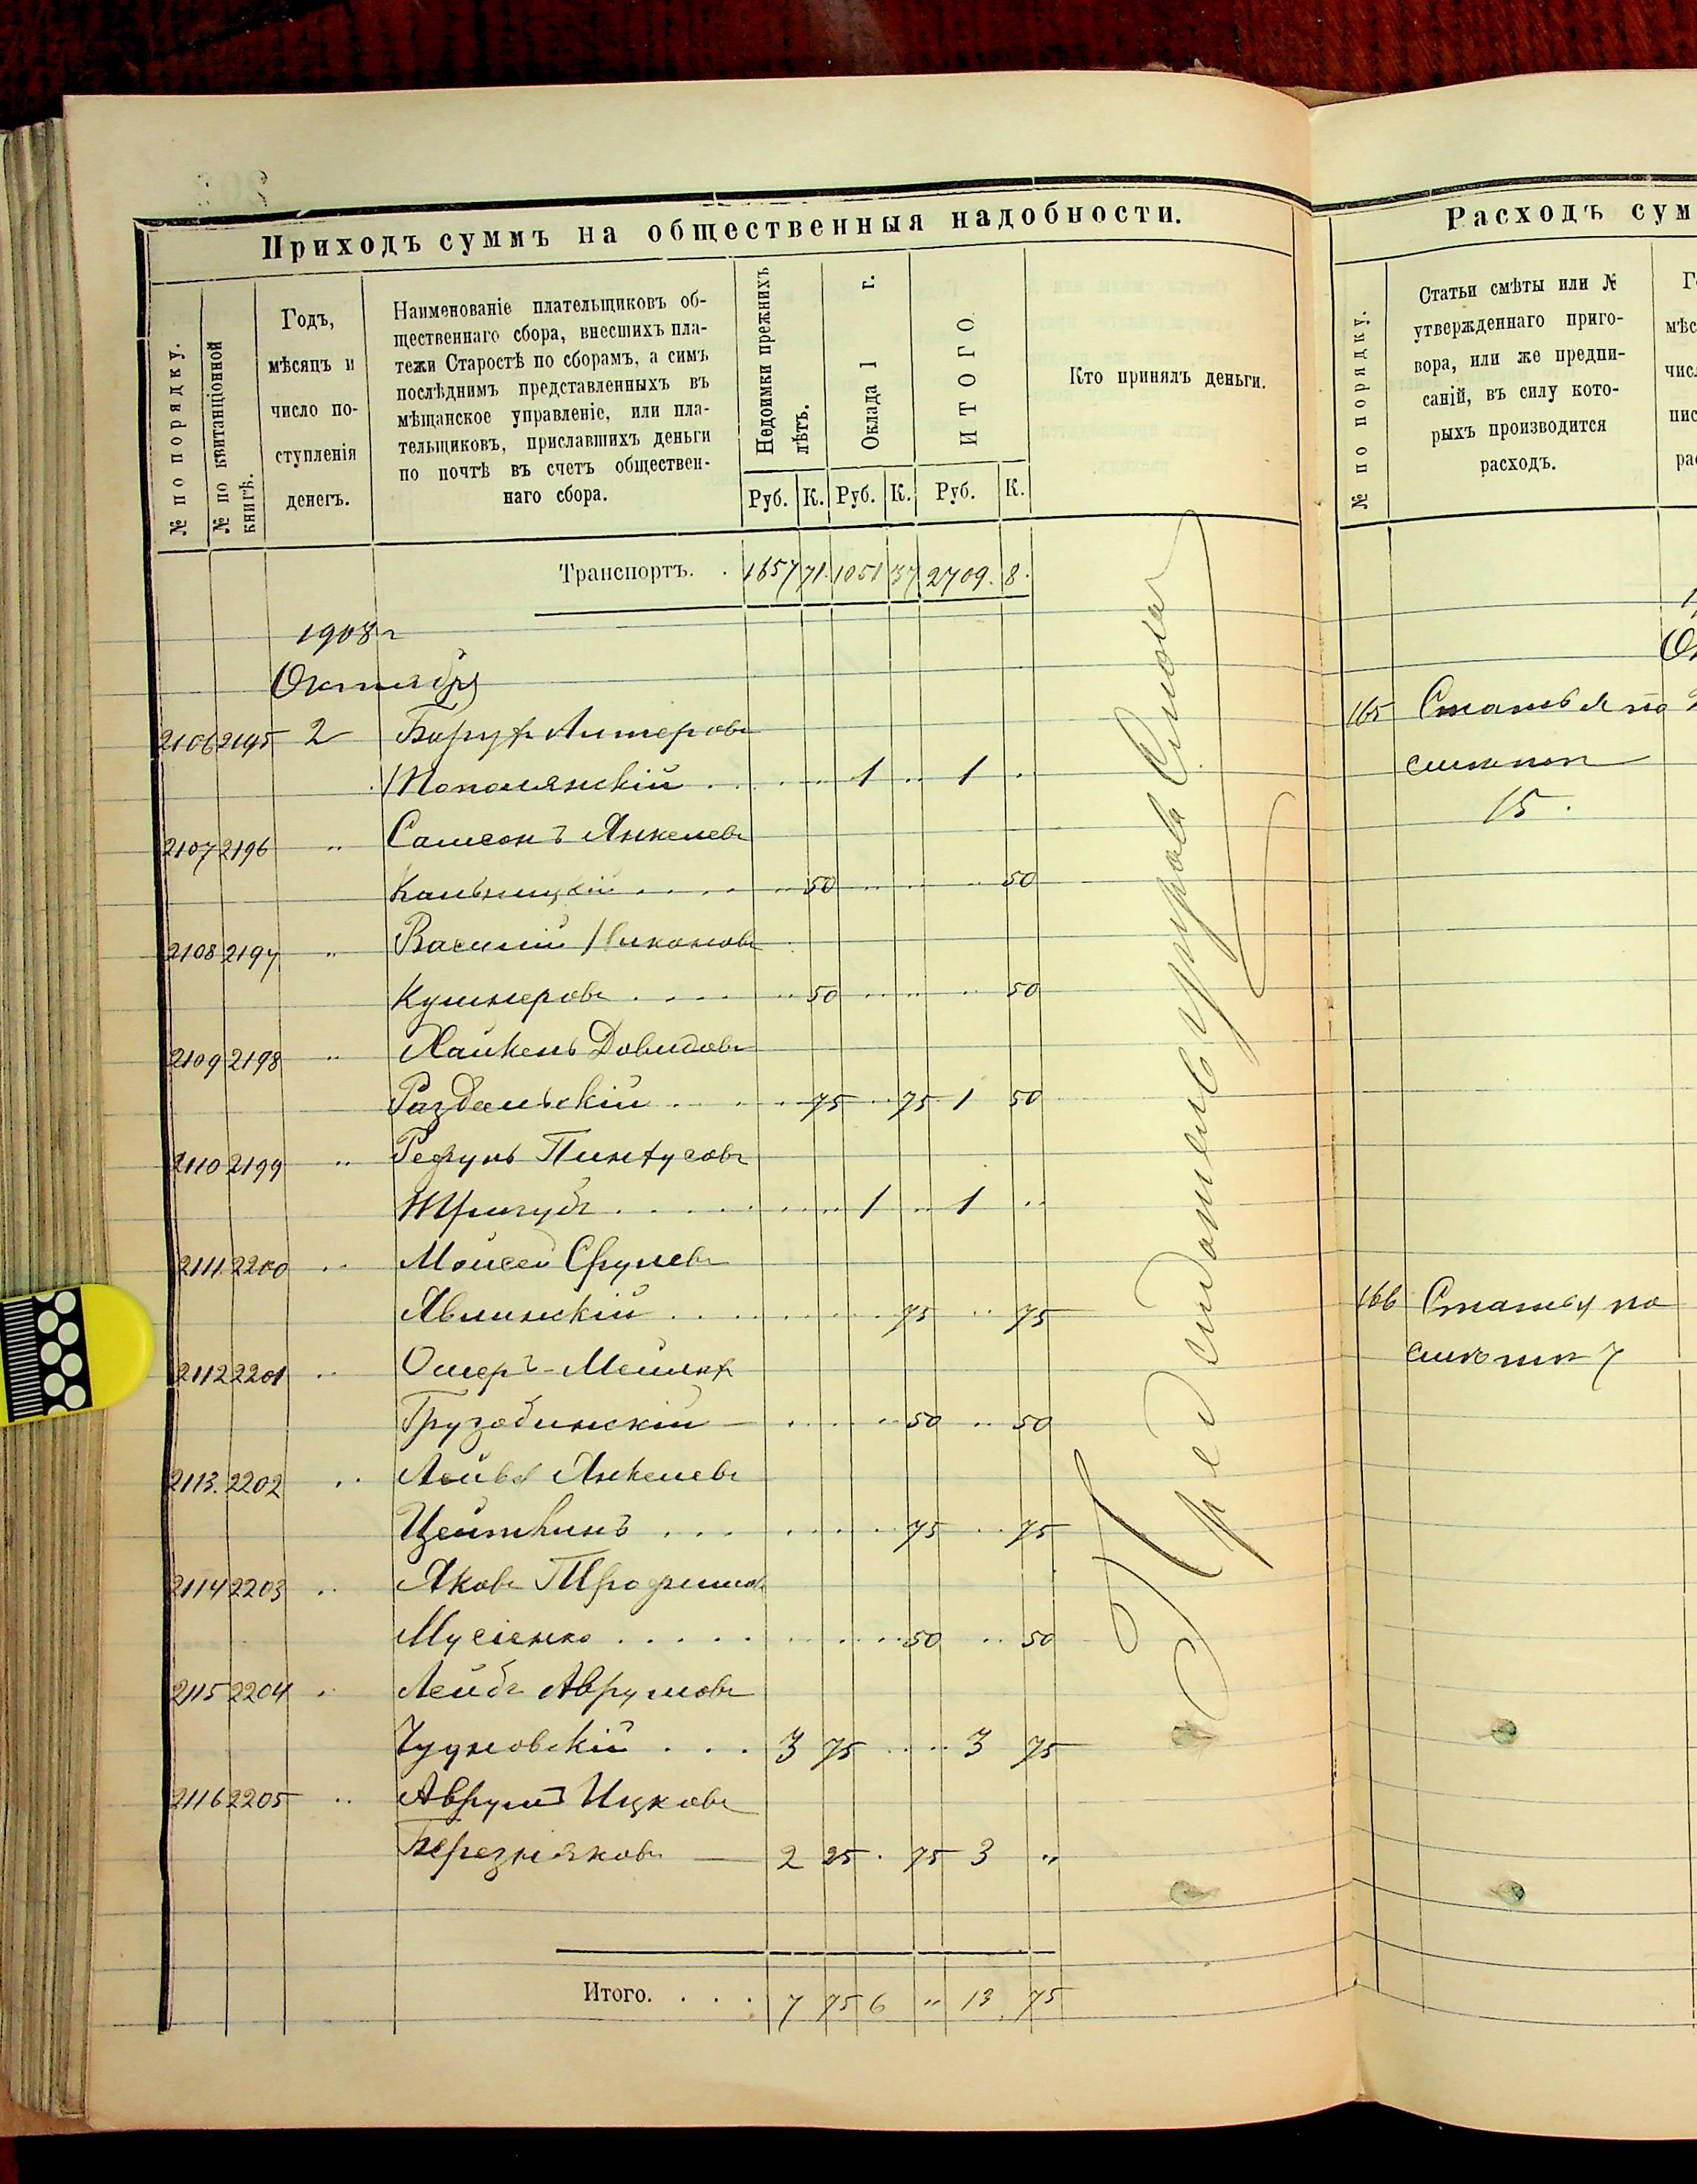 Приходъ суммъ на общественныя надобности.
№ по порядку.
№ по квитанціонной книгѣ.
Годъ,
мѣсяцъ и
число по-
ступленія
денегъ.
Наименованіе плательщиковъ об-
щественнаго сбора, внесшихъ пла-
тежи Старостѣ по сборамъ, а симъ
послѣднимъ представленныхъ въ
мѣщанское управленіе, или пла-
тельщиковъ, приславшихъ деньги
по почтѣ въ счетъ обществен-
наго сбора.
Недоимки прежнихъ лѣтъ.
Оклада 1 г.
ИТОГО.
Кто принялъ деньги.
Руб. К. Руб. К. Руб. К.
Транспортъ. . 1657 71 1051 37 2709 8
1908 г
Октября
2106 2195 2 Борух Литеровъ
Тополянскій . . . . 1 .. 1 .
2107 2196 .. Самсонъ Янкелевъ
Кальницкій . . . . .. 50 .. .. .. 50
2108 2197 .. Василій Никоновъ
Кушнеровъ . . . . .. 50 .. .. .. 50
2109 2198 .. Хайкель Довидовъ
Раздольскій . . . .. 75 .. 75 1 50
2110 2199 .. Пинхусовъ
Тригубъ . . . . . 1 .. 1 ..
2111 2200 .. Моисей Срулевъ
Явлинскій . . . . . . 75 .. 75
2112 2201 .. Ошеръ-Мейлах
Грузобинскій — . . . .. 50 .. 50
2113. 2202 .. Янкелевъ
Цейтлинъ . . . . . . . 75 .. 75
2114 2203 .. Яковъ Трофимовъ
Мусіенко . . . . . . . .. 50 .. 50
2115 2204 .. Лейбъ Аврумовъ
Чудновскій . . . 3 75 .. .. 3 75
2116 2205 .. Аврумъ Ицковъ
Березняковъ — 2 25 . 75 3 ..
Итого. . . . 7 75 6 .. 13 75
Расходъ сум
№ по порядку.
Статьи смѣты или №
утвержденнаго приго-
вора, или же предпи-
саній, въ силу кото-
рыхъ производится
расходъ.
165 Статья по
смѣтѣ
15.
166 Статья по
смѣтѣ 7